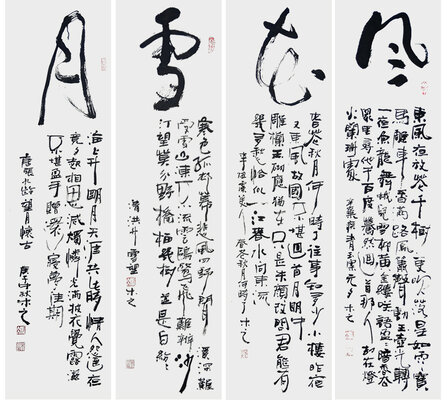 风
東風夜放花千樹更吹落星如雨寶
馬雕車香滿路風簫聲動玉壺光轉
一夜魚龍舞蛾兒雪柳黃金縷笑語盈盈暗香去
眾里尋他千百度驀然回首那人却在燈
火闌珊處
辛棄疾青玉案元夕木之
花
春花秋月何時了往事知多少小樓昨宿
又東風故國不堪回首月明中
雕欄玉砌應猶在只是朱顏改問君能有
幾多愁恰似一江春水向東流
李煜虞美人春花秋月何時了木之
雪
寒色孤村幕悲風四野聞溪深難
受雪山凍不流雲鷗鷺飛難辨沙
汀望莫分野橋梅幾樹並是白紛紛
清洪升雪望木之
月
海上升明月天涯共此時情人怨遙夜
竟夕起相思滅燭憐光滿披衣覺露滋
不堪盈手贈還寢夢佳期
唐張九齡望月懷古
庚子年秋木之